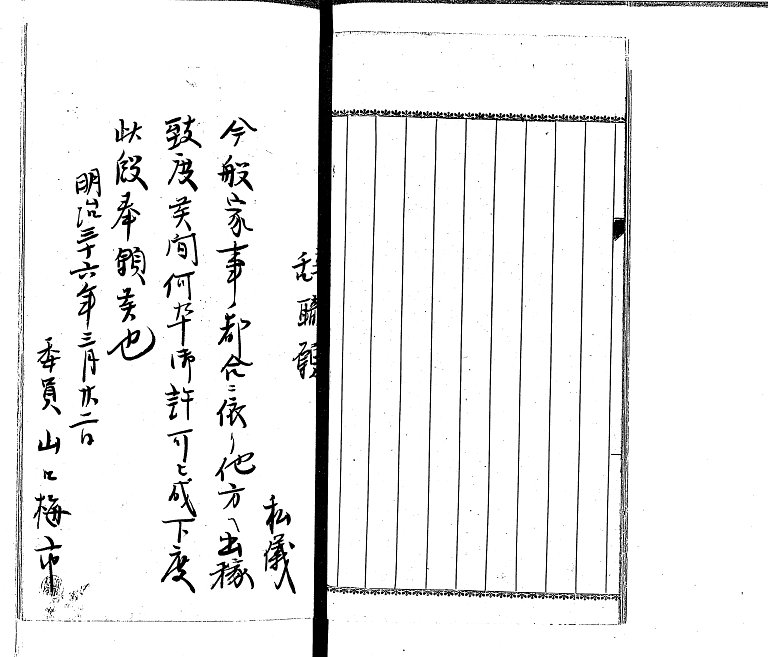 辞職願
私儀
今般家事ノ都合ニ依リ他方ヘ出稼
致度候間何卒御許可被成下度
此段奉願候也
明治三十六年三月廿二日
委員 山口梅市